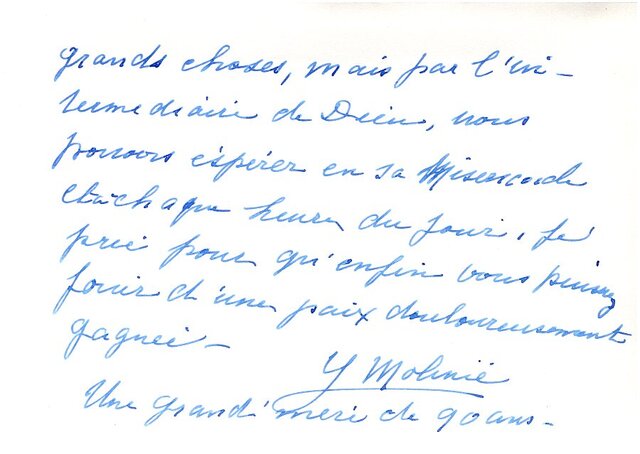 grands choses, mais par l'in-
termediaire de Dieu, nous
pouvons espérer en sa Misericorde
et à chaque heure du jour, je
prie pour qu'enfin vous puissiez
jouir d'une paix douloureusement
gagnée -
Y Molinié
Une grand'mère de 90 ans -